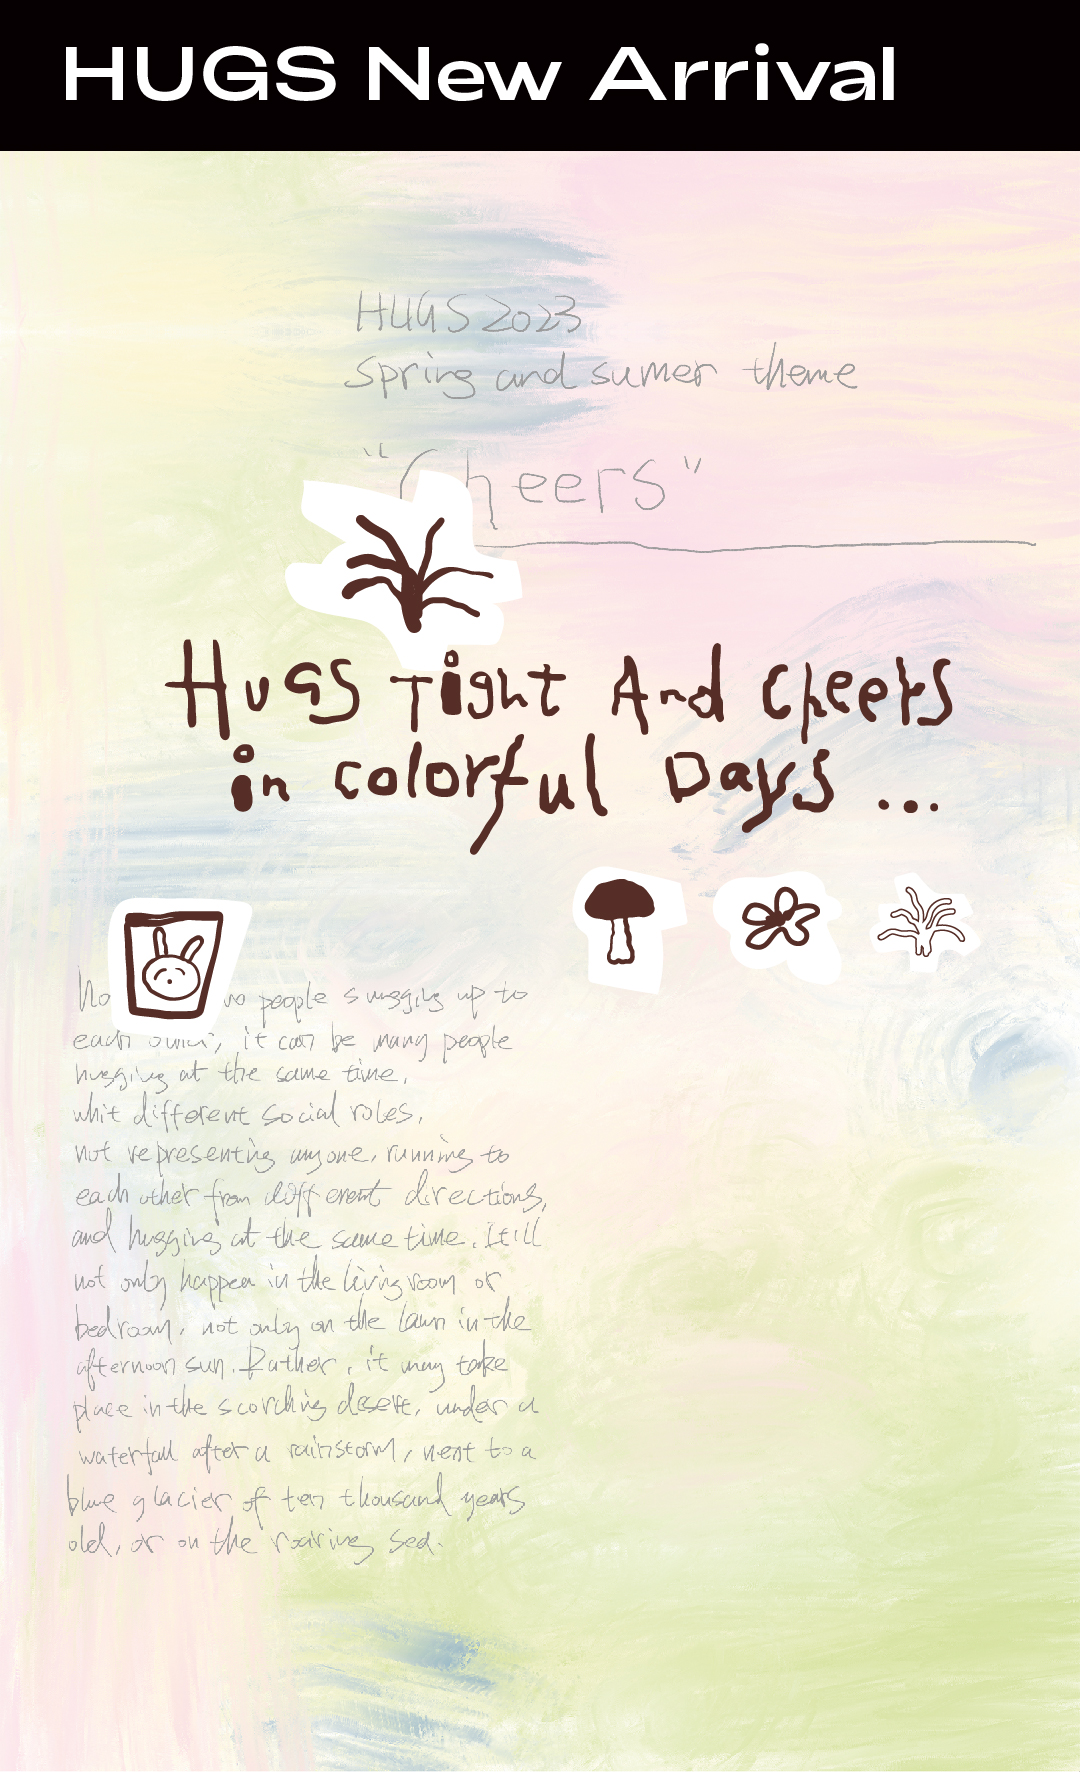 HUGS New Arrival
HUGS 2023
Spring and sumer theme
"Cheers"
HuGS Tight And Cheers
in colorful Days ...
people snugging up to
each other, it can be many people
hugging at the same time,
whit different social roles,
not representing anyone, running to
each other from different directions,
and hugging at the same time. It'll
not only happen in the living room or
bedroom, not only on the lawn in the
afternoon sun. Rather, it may take
place in the scorching desert, under a
waterfall after a rainstorm, next to a
blue glacier of ten thousand years
old, or on the roaring sea.